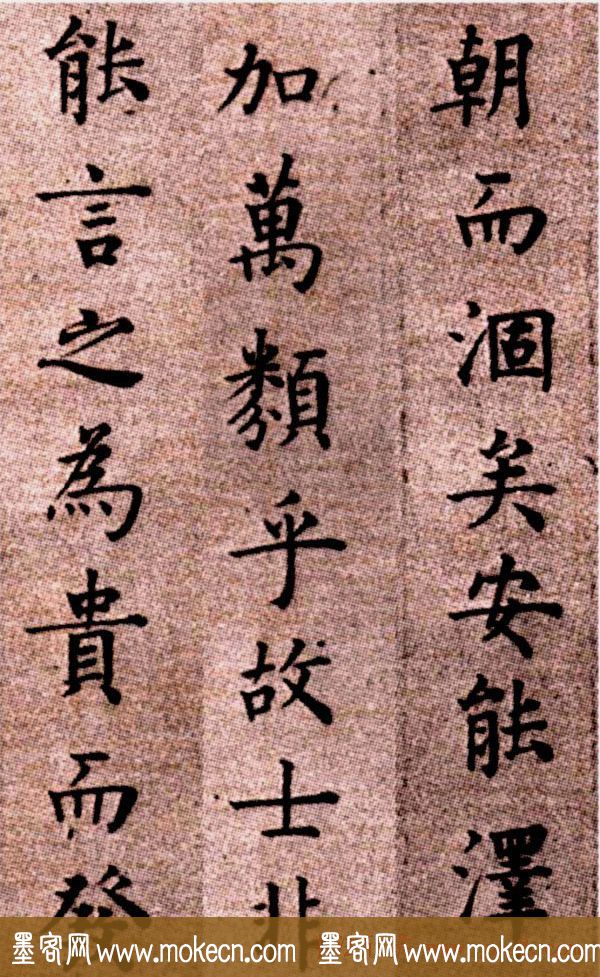 朝而涸矣安能澤
加萬類乎故士非
能言之為貴而發
墨客网 www.mokecn.com 墨客网 www.mokecn.com